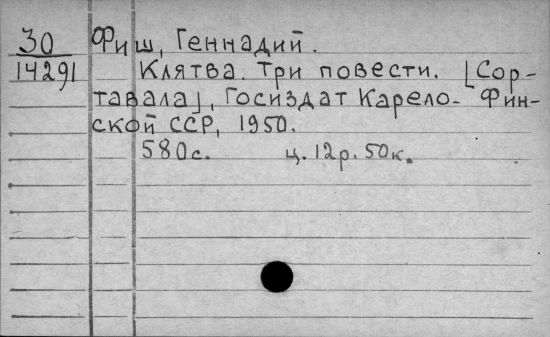 30 Фиш, Геннадий.
14291 Клятва. Три повести. [Сор-
тавала], Госиздат Карело-Фин-
ской ССР, 1950.
580с. ц. 12р. 50к.